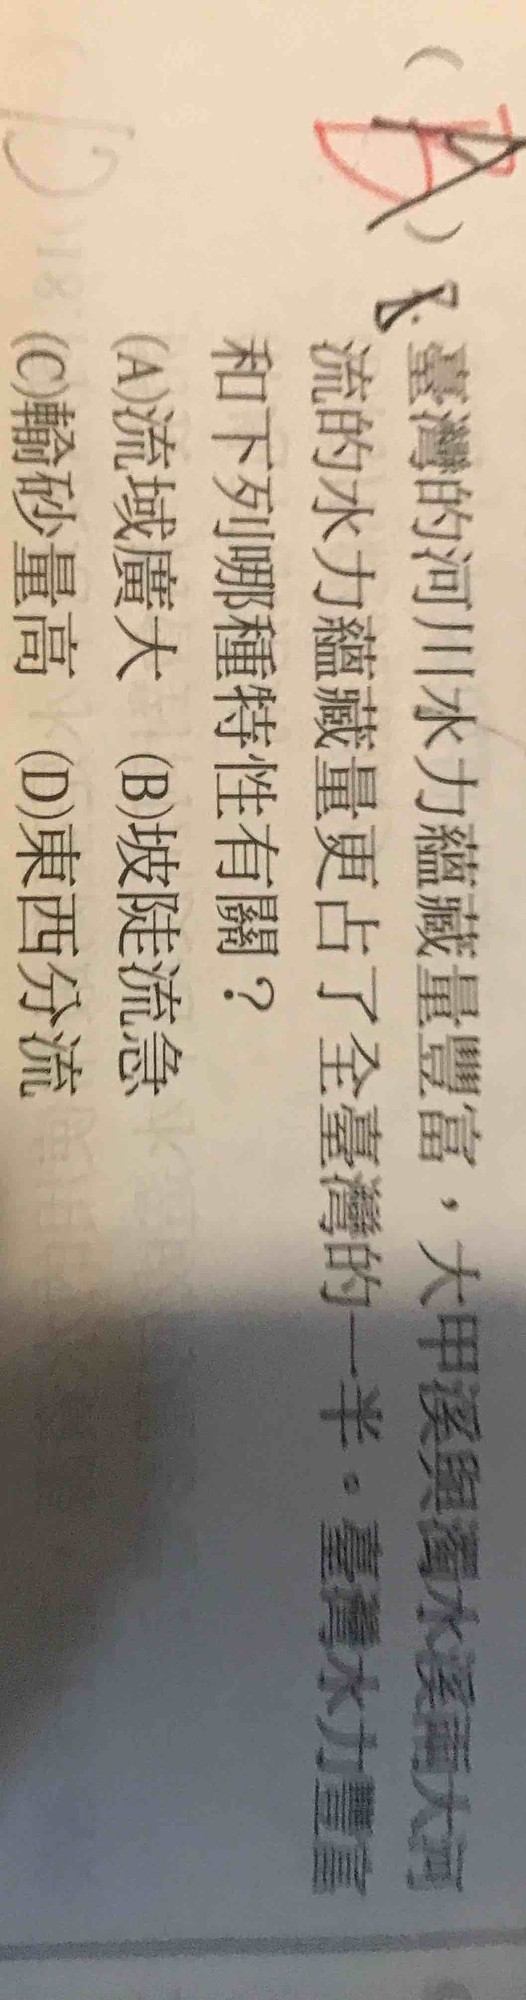 ( B ) 臺灣的河川水力蘊藏量豐富，大甲溪與濁水溪兩大河
流的水力蘊藏量更占了全臺灣的一半。臺灣水力豐富
和下列哪種特性有關？
(A)流域廣大 (B)坡陡流急
(C)輸砂量高 (D)東西分流